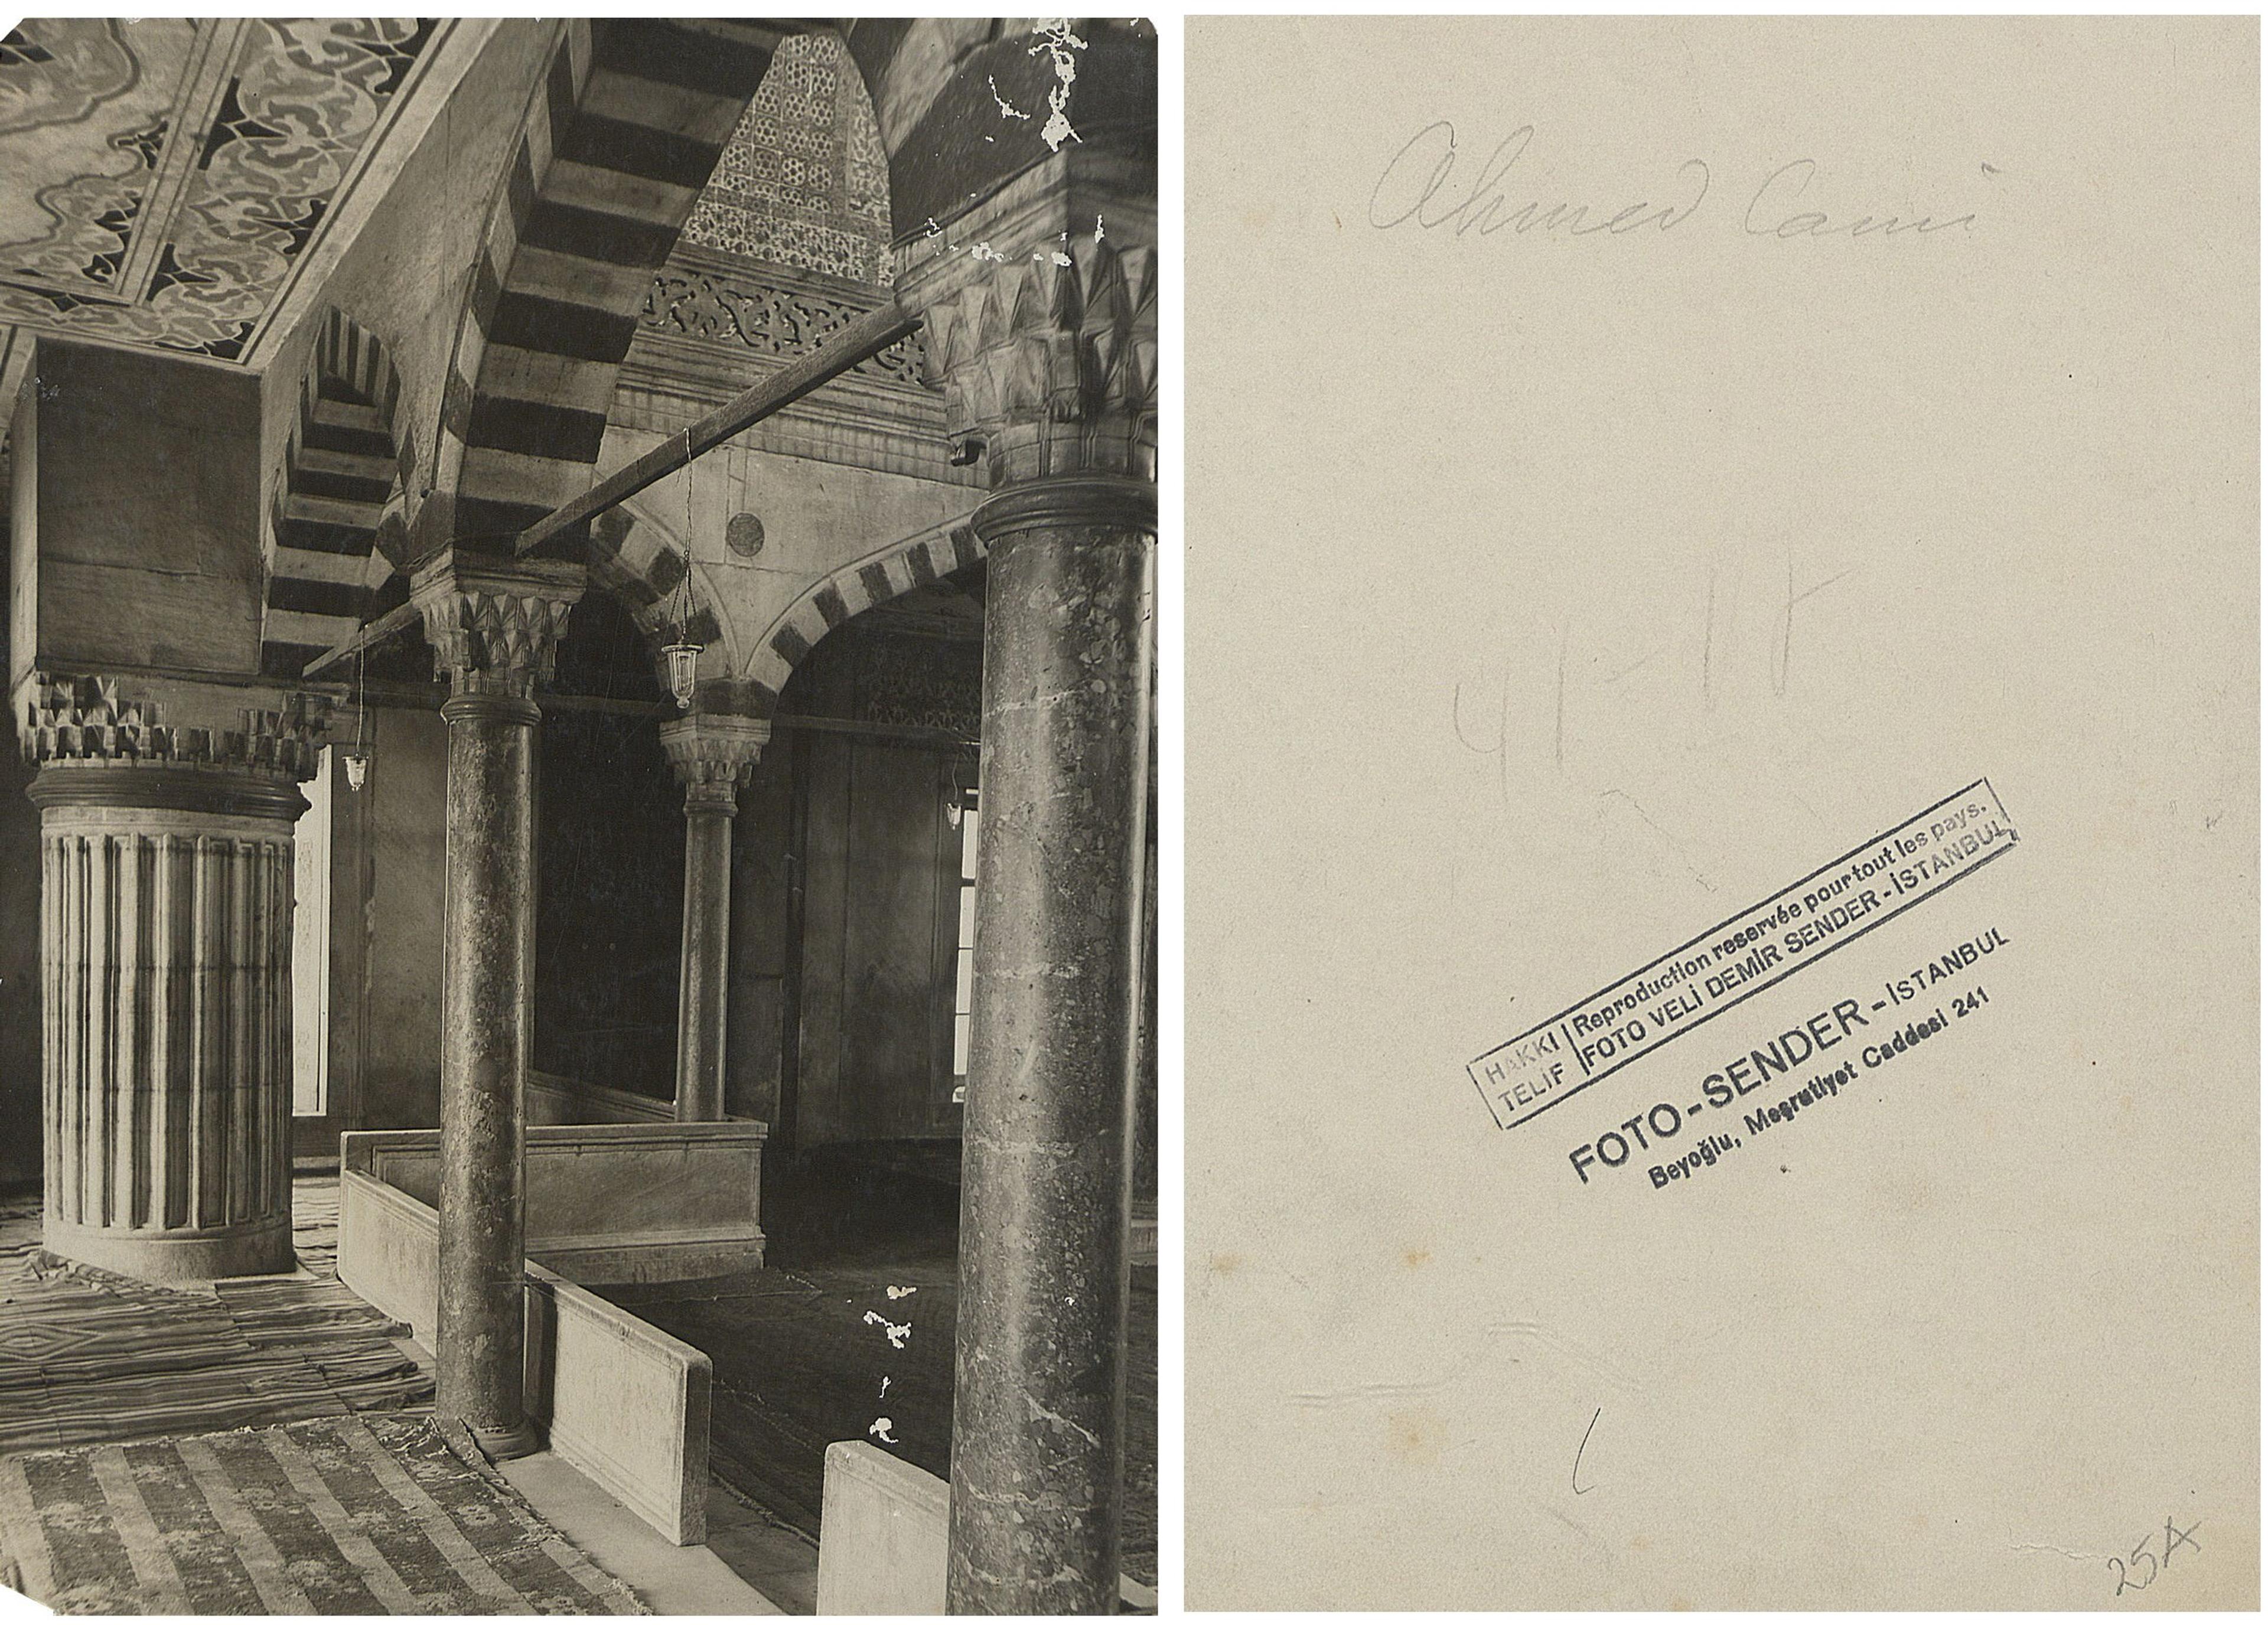 Ahmed Cami
41-17
HAKKI
TELİF
Reproduction reservée pour tout les pays.
FOTO VELİ DEMİR SENDER - İSTANBUL
FOTO - SENDER - İSTANBUL
Beyoğlu, Meşrutiyet Caddesi 241
25A